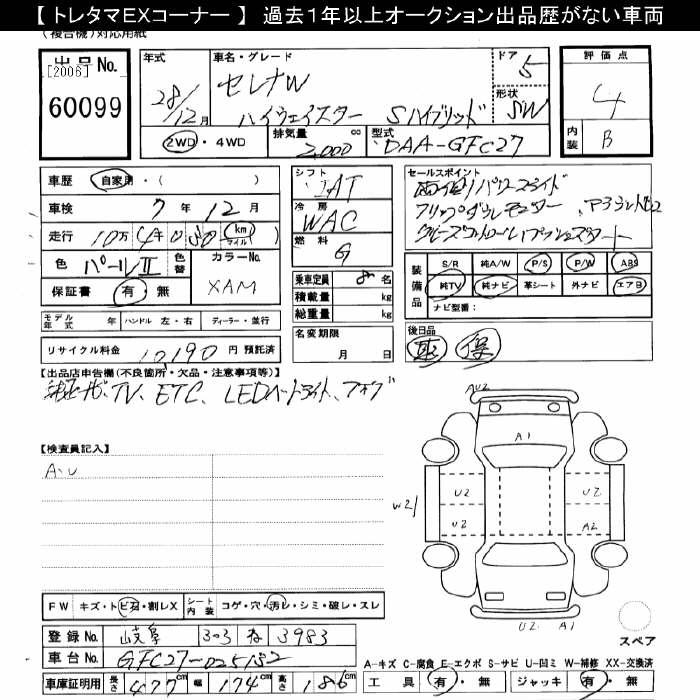 【 トレタマEXコーナー 】 過去1年以上オークション出品歴がない車両
(複合機)対応用紙
出品 No.
[2006]
60099
年式 28/12月
車名・グレード セレナW
ハイウェイスター Sハイブリッド
ドア 5
形状 SW
評価点 4
内装 B
2WD・4WD
排気量 2,000 cc
型式 DAA-GFC27
車歴 自家用・( )
車検 7年12月
走行 10万4千050 (km マイル)
色 パールII
色替
カラーNo. XAM
保証書 有・無
シフト IAT
冷房 WAC
燃料 G
乗車定員 8 名
積載量 kg
総重量 kg
セールスポイント
両側パワースライド
フリップダウンモニター、アラウンドビュー
クルーズコントロール プッシュスタート
装備品 S/R 純A/W P/S P/W ABS
純TV 純ナビ 革シート 外ナビ エアB
ナビ型番:
モデル年式 年 ハンドル 左・右 ディーラー・並行
名変期限 月 日
後日品
リサイクル料金 10,190 円 預託済
【出品店申告欄(不良箇所・欠品・注意事項等)】
純正ナビ、TV、ETC、LEDヘッドライト、フォグ
【検査員記入】
A・U
AU2
A1
U2 U2
W21
U2 A2
U2 A1
スペア
FW キズ・トビ石・割レX
シート内装 コゲ・穴・汚レ・シミ・破レ・スレ
登録 No. 岐阜 303 な 3983
車台 No. GFC27-025132
車庫証明用 長さ 477cm 幅 174cm 高さ 186cm
A-キズ C-腐食 E-エクボ S-サビ U-凹ミ W-補修 XX-交換済
工具 有・無 ジャッキ 有・無